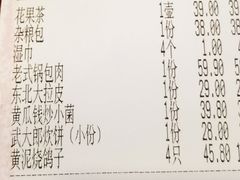 花果茶 1壶 39.00 39.00
杂粮包 1份 38.00 38.00
湿巾 4个 1.00
老式锅包肉 1份 59.90
东北大拉皮 1份 28.00
黄瓜钱炒小菌 1份 39.80
武大郎炊饼（小份） 1份 28.00
黄泥烧鸽子 4只 45.80